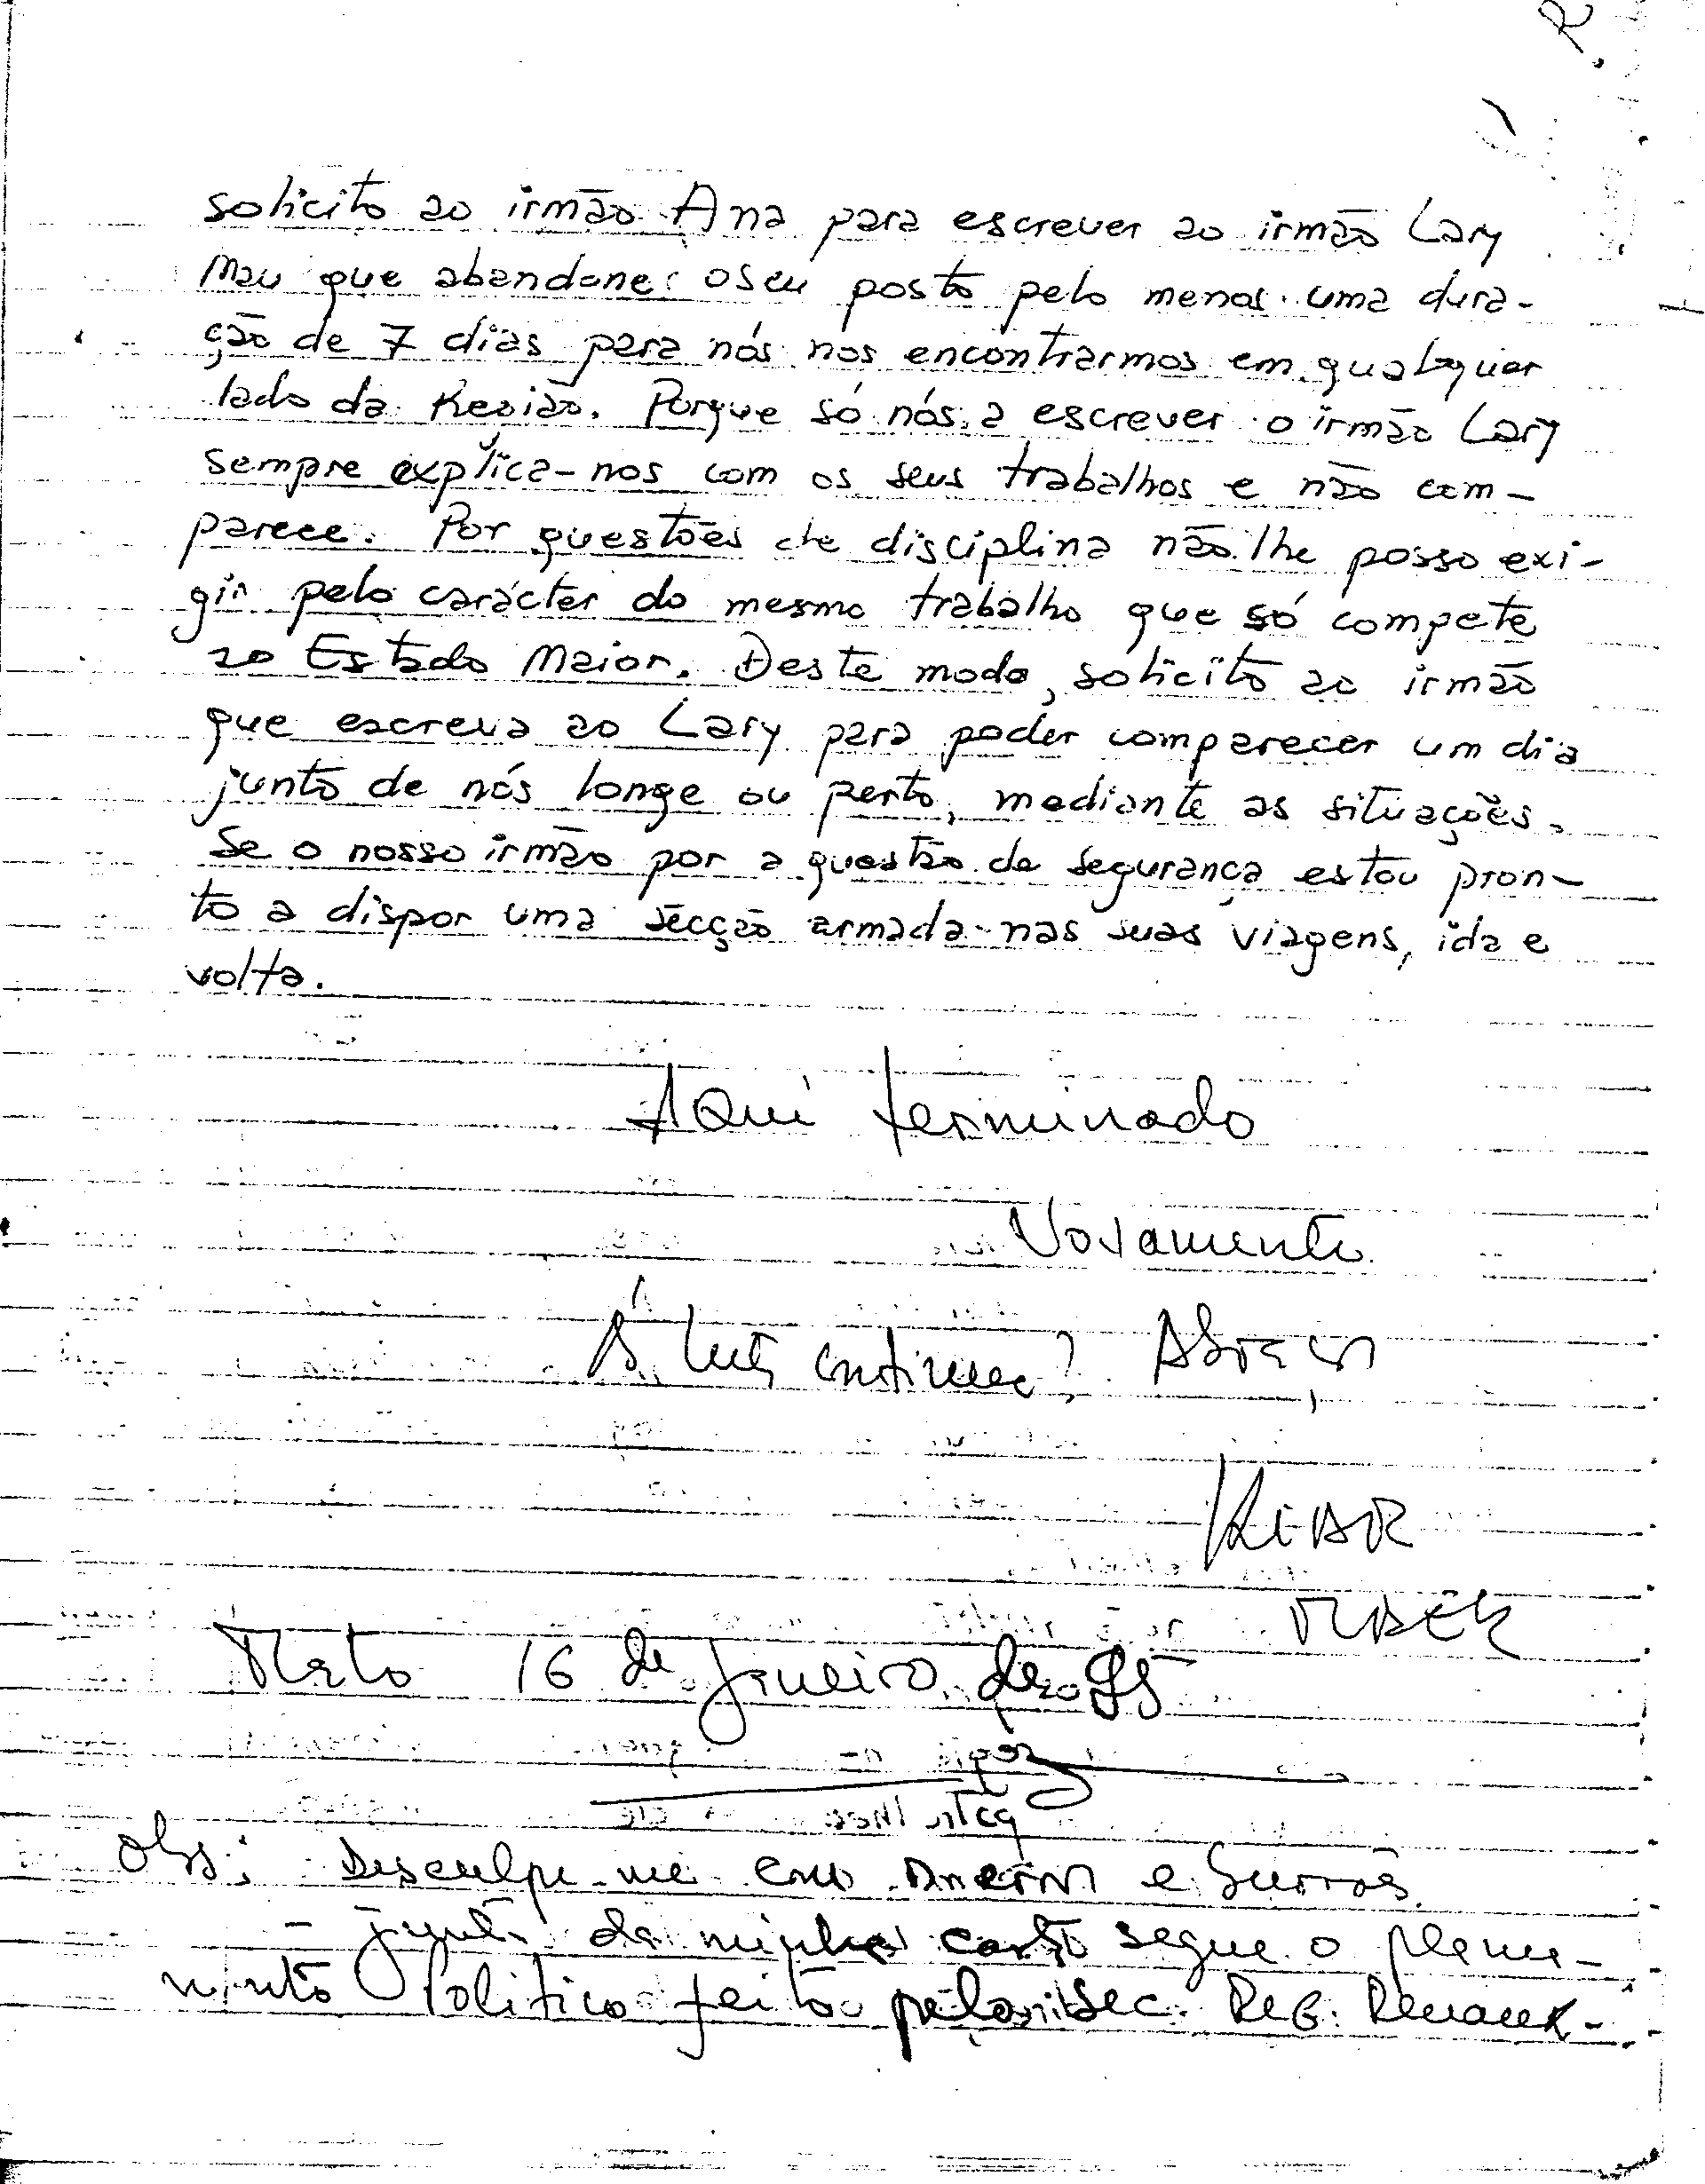 solicito ao irmão Ana para escrever ao irmão Lary
Mau que abandone o seu posto pelo menos uma dura-
ção de 7 dias para nós nos encontrarmos em qualquer
lado da Região. Porque só nós a escrever o irmão Lary
sempre explica-nos com os seus trabalhos e não com-
parece. Por questões de disciplina não lhe posso exi-
gir pelo carácter do mesmo trabalho que só compete
ao Estado Maior. Deste modo, solicito ao irmão
que escreva ao Lary para poder comparecer um dia
junto de nós longe ou perto, mediante as situações.
Se o nosso irmão por a questão de segurança estou pron-
to a dispor uma secção armada nas suas viagens, ida e
volta.
Aqui terminado
Vosamente
A luta continua! Abraços
Mato 16 de Janeiro de 95
Obs: Desculpe-me com e burrões
- junto da minha carta segue o plana-
minto Político feito pelo sec. Reg.